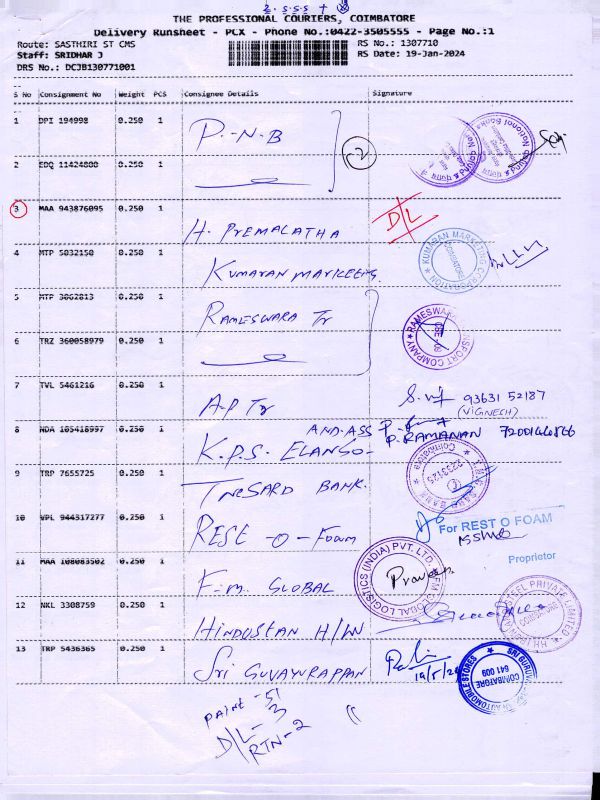 2.5.5.5 +
THE PROFESSIONAL COURIERS, COIMBATORE
Delivery Runsheet - PCX - Phone No.:0422-3505555 - Page No.:1
Route: SASTHIRI ST CMS
RS No.: 1307710
Staff: SRIDHAR J
RS Date: 19-Jan-2024
DRS No.: DCJB130771001
S No Consignment No Weight PCS Consignee Details Signature
1 DPI 194998 0.250 1 P.-N.B
2 EDQ 11424800 0.250 1
(2)
3 MAA 943876095 0.250 1 H. PREMALATHA D/L
4 MTP 5032150 0.250 1 KUMARAN MARKEERS
KUMARAN MARKETING CORPORATION COIMBATORE
5 MTP 3062813 0.250 1 RAMESWARA Tr
6 TRZ 360058979 0.250 1
RAMESWARA TRANSPORT COMPANY CBE
7 TVL 5461216 0.250 1 A.P Tr 93631 52187
(VIGNECH)
8 NDA 105418997 0.250 1 K.P.S. ELANGO- AND-ASS P. RAMANAN
9 TRP 7655725 0.250 1 TNESARD BANK.
2233125
10 VPL 944317277 0.250 1 REST -O- FOAM
For REST O FOAM
Proprietor
11 MAA 108083502 0.250 1 F.M. GLOBAL Praveen
FM GLOBAL LOGISTICS (INDIA) PVT. LTD.
12 NKL 3308759 0.250 1 HINDUSTAN H/W
13 TRP 5436365 0.250 1 Sri GUVAYURAPPAN
COIMBATORE
641 009
PAINT - 51
D/L - 3
RTN - 2